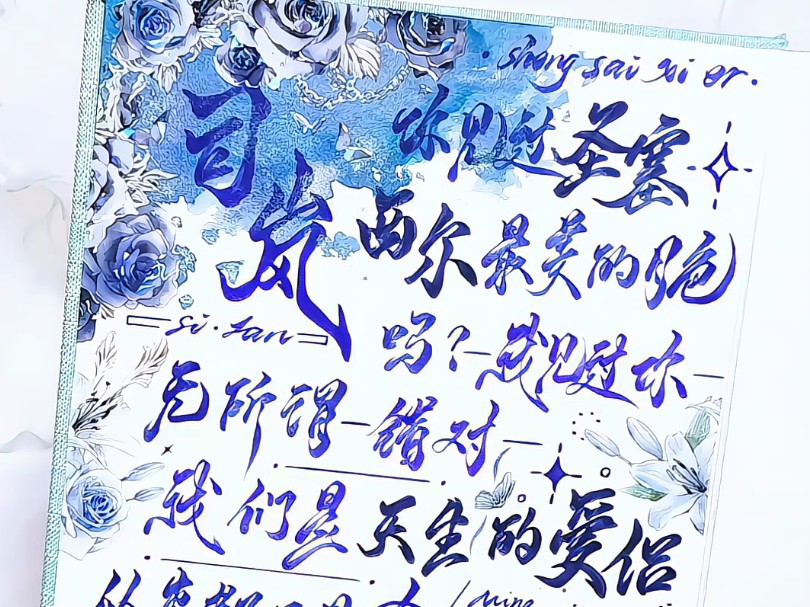 sheng sai xi er.
司岚
si·lan
你见过圣塞
西尔最美的月色
吗?—我见过你—
无所谓—错对—
我们是天生的爱侣